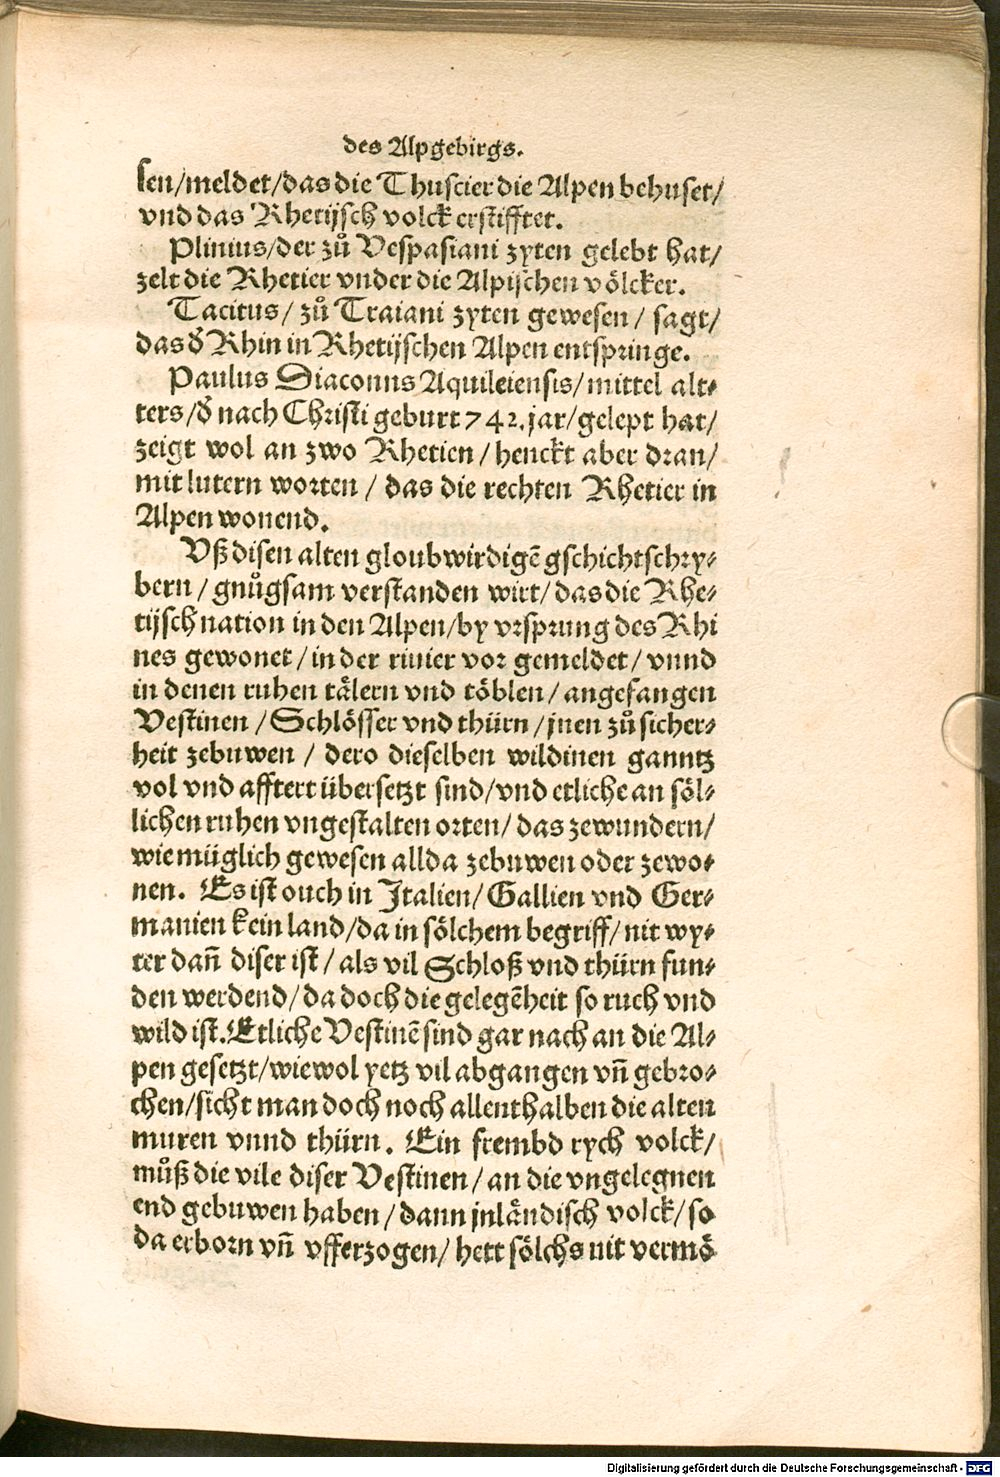 des Alpgebirgs.
sen/meldet/das die Thuscier die Alpen behuset/
vnd das Rhetijsch volck erstifftet.
Plinius/der zů Vespasiani zyten gelebt hat/
zelt die Rhetier vnder die Alpischen völcker.
Tacitus/ zů Traiani zyten gewesen/ sagt/
das d̕ Rhin in Rhetijschen Alpen entspringe.
Paulus Diaconus Aquileiensis/ mittel alt⸗
ters/d̕ nach Christi geburt 742. jar/gelept hat/
zeigt wol an zwo Rhetien/henckt aber dran/
mit lutern worten/ das die rechten Rhetier in
Alpen wonend.
Vß disen alten gloubwirdigē gschichtschry⸗
bern/ gnůgsam verstanden wirt/ das die Rhe⸗
tijsch nation in den Alpen/by vrsprung des Rhi
nes gewonet/in der riuier vor gemeldet/ vnnd
in denen ruhen tälern vnd töblen/ angefangen
Vestinen/Schlösser vnd thürn/jnen zů sicher⸗
heit zebuwen/ dero dieselben wildinen ganntz
vol vnd afftert übersetzt sind/vnd etliche an söl⸗
lichen ruhen vngestalten orten/ das zewundern/
wie müglich gewesen allda zebuwen oder zewo⸗
nen. Es ist ouch in Italien/Gallien vnd Ger⸗
manien kein land/da in sölchem begriff/nit wy⸗
ter dañ diser ist/als vil Schloß vnd thürn fun⸗
den werdend/da doch die gelegēheit so ruch vnd
wild ist. Etliche Vestinē sind gar nach an die Al⸗
pen gesetzt/wiewol yetz vil abgangen vñ gebro⸗
chen/sicht man doch noch allenthalben die alten
muren vnnd thürn. Ein frembd rych volck/
můß die vile diser Vestinen/an die vngelegnen
end gebuwen haben/dann jnländisch volck/so
da erborn vñ vfferzogen/ hett sölchs nit vermö
Digitalisierung gefördert durch die Deutsche Forschungsgemeinschaft - DFG